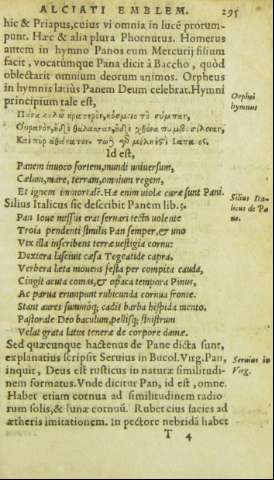 ALCIATI EMBLEM. 295
hic & Priapus, cuius vi omnia in lucē prorum-
punt. Hæc & alia plura Phornutus. Homerus
autem in hymno Panos eum Mercurij filium
facit, vocatumque Pana dicit à Baccho, quòd
oblectarit omnium deorum animos. Orpheus
in hymnis latiùs Panem Deum celebrat. Hymni
Orphei
principium tale est,
hymnus
Πᾶνα καλῶ κρατερὸν, κόσμοιο τὸ σύμπαν,
Id est,
Panem inuoco fortem, mundi vniuersum,
Cælum, mare, terram, omnium regem,
Et ignem immortale. Hæ enim violæ curæ sunt Pani.
Silius Italicus sic describit Panem lib.
Silius Ita-
licus de Pa
ne.
Pan Ioue missus erat seruari tecta volente
Troia pendenti similis Pan semper, & vno
Vix vlla inscribens terræ vestigia cornu:
Dextera lasciuit cæsa Tegeatide capra,
Verbera læta mouens festa per compita cauda,
Cingit acuta comas, & opaca tempora Pinus,
Ac parua erumpunt rubicunda cornua fronte.
Stant aures summóq; cadit barba hispida mento.
Pastorale Deo baculum, pellisq; sinistrum
Velat grata latus tenera de corpore damæ.
Sed quæcunque hactenus de Pane dicta sunt,
explanatiùs scripsit Seruius in Bucol. Virg. Pan,
Seruius in
Virg.
inquit, Deus est rusticus in naturæ similitudi-
nem formatus. Vnde dicitur Pan, id est, omne.
Habet etiam cornua ad similitudinem radio
rum solis, & lunæ cornuũ. Rubet eius facies ad
ætheris imitationem. In pectore nebridā habet
T 4